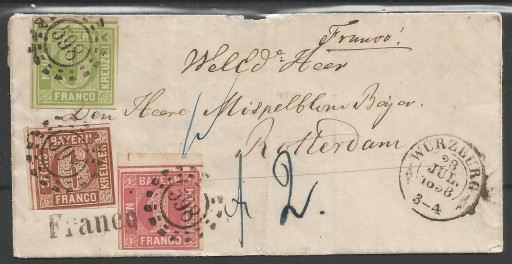 Franco!
Welld. Heer
Den Heere Mispelblom Beijer
Rotterdam
598
FRANCO
KREUZER
BAYERN
KREUZER
FRANCO
598
BAYERN
FRANCO
Franco
2
WÜRZBURG
28
JUL.
1858
3-4